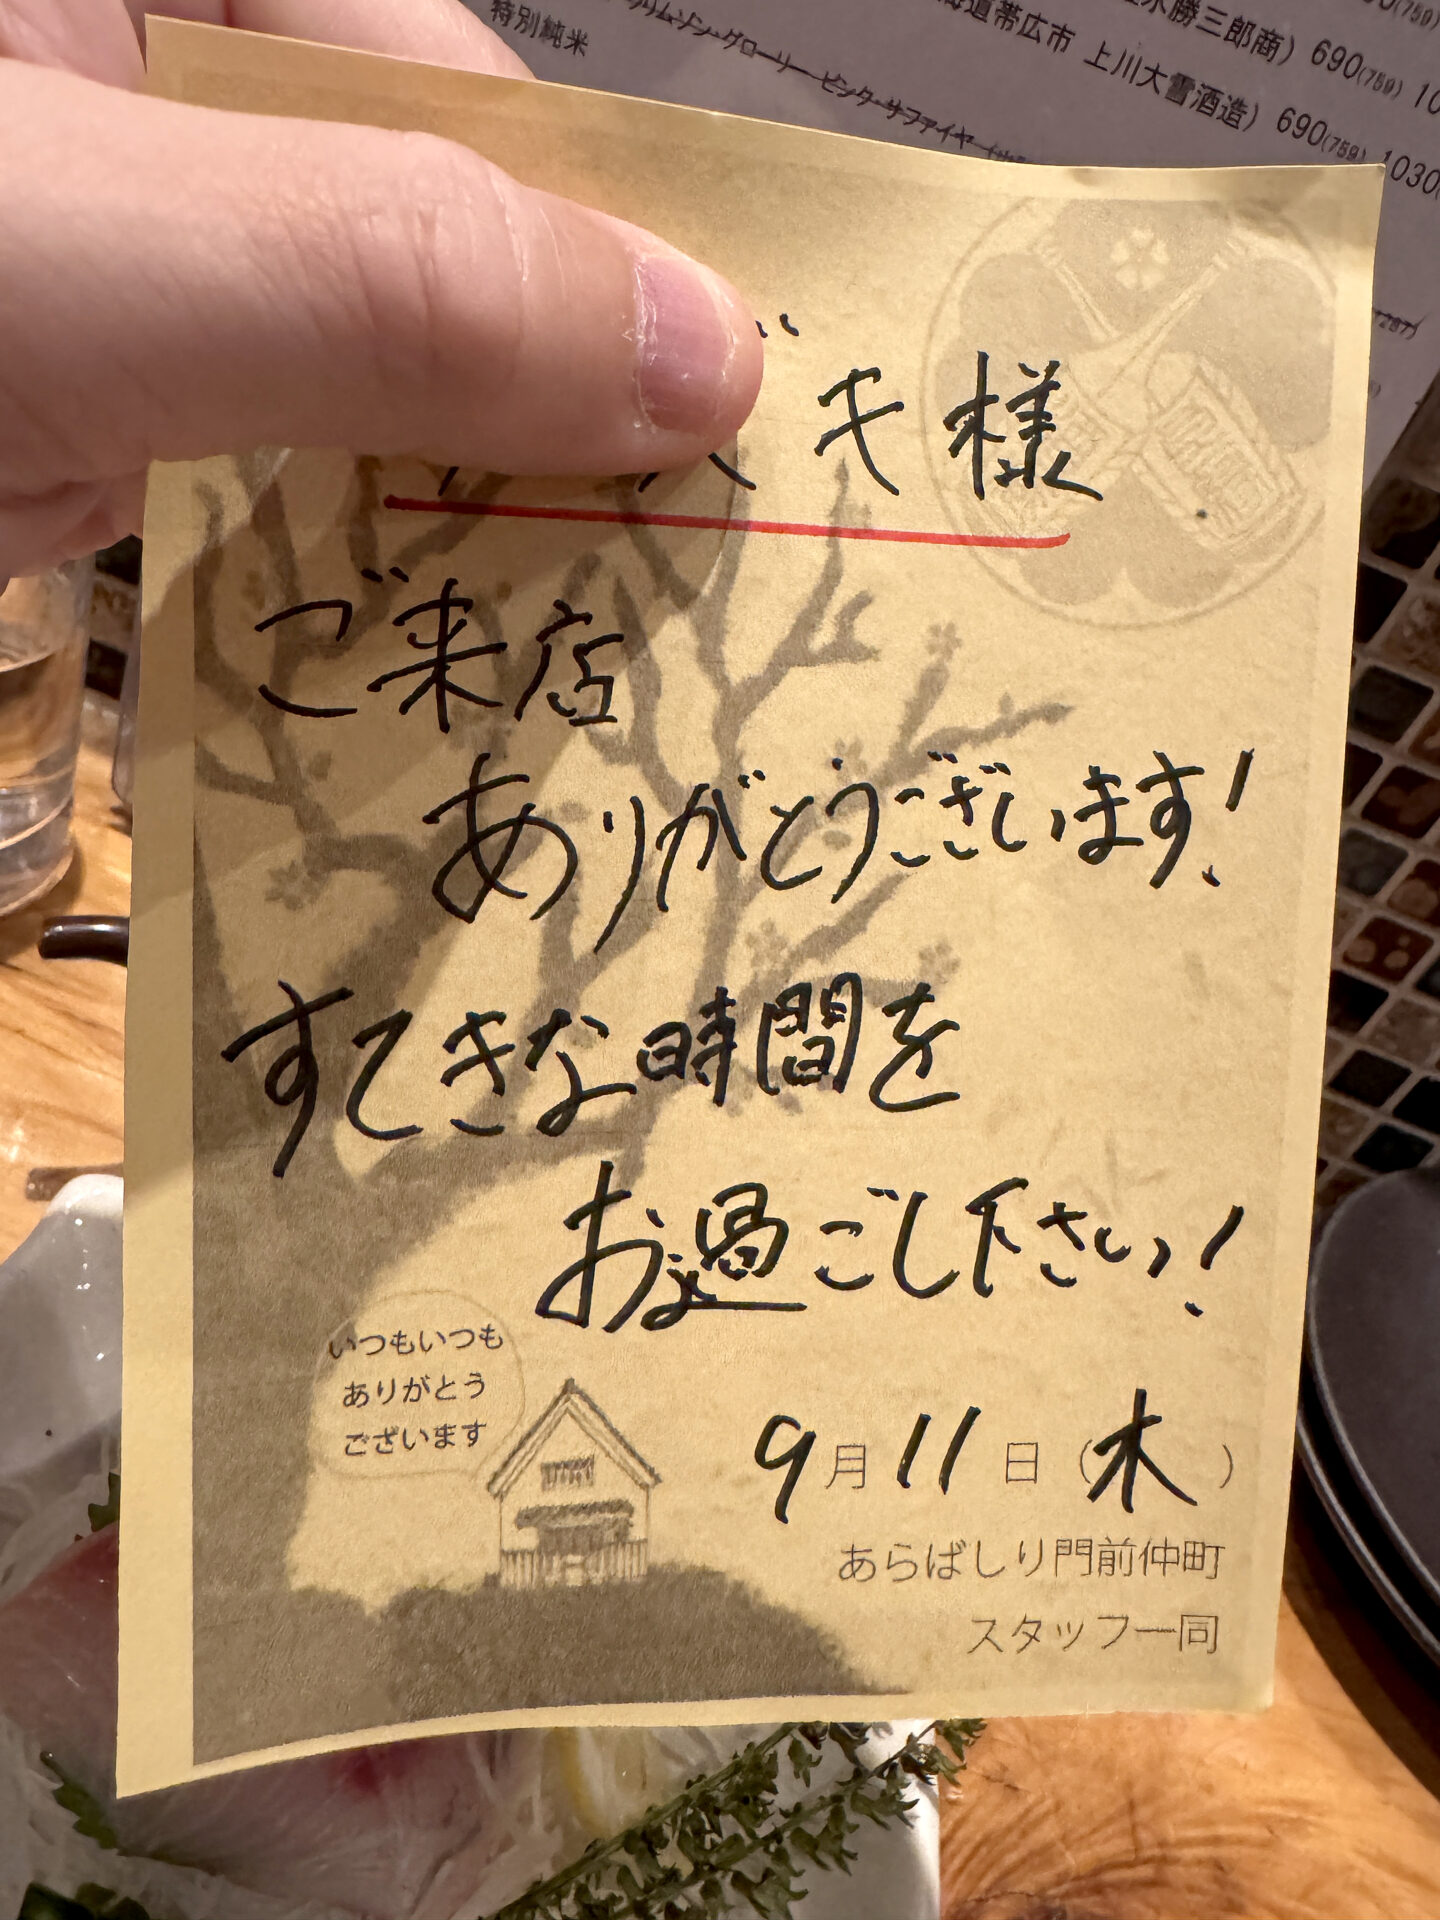 特別純米
勝三郎商) 690(759) 10
海道帯広市 上川大雪酒造) 690(759) 1030
グローリー ピンク・サファイヤ
キ様
ご来店
ありがとうございます!
すてきな時間を
お過ごし下さい!
いつもいつも
ありがとう
ございます
9月11日(木)
あらばしり門前仲町
スタッフ一同